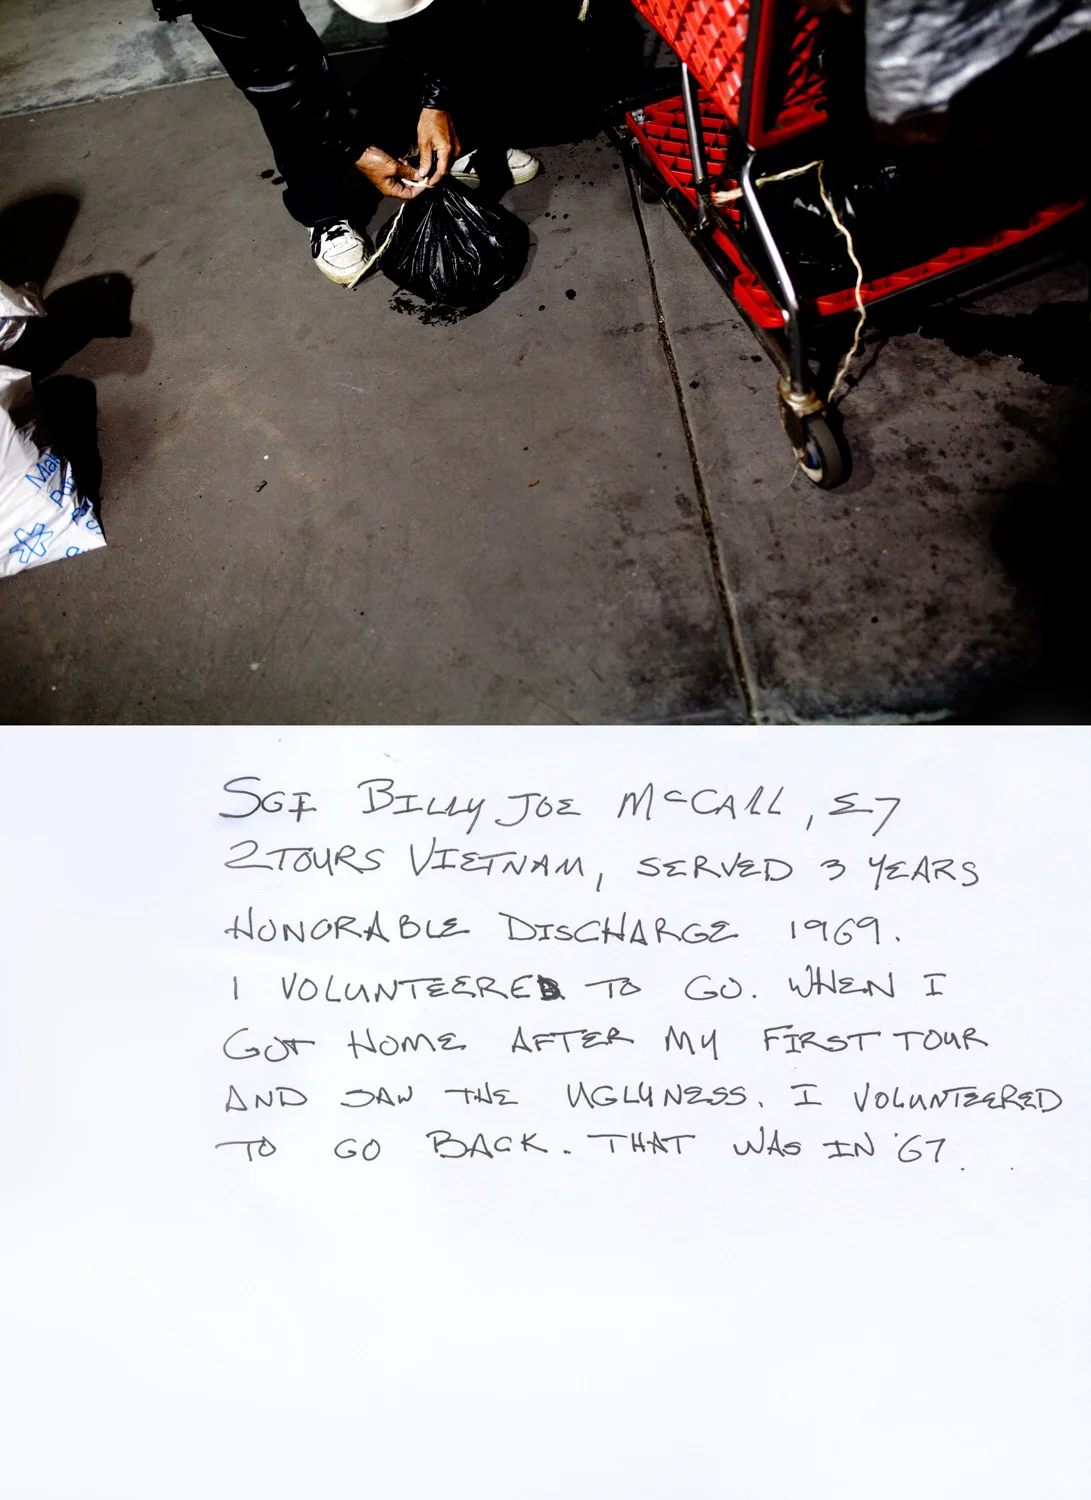 Mak
SGT BILLY JOE McCALL, E7
2 TOURS VIETNAM, SERVED 3 YEARS
HONORABLE DISCHARGE 1969.
I VOLUNTEERED TO GO. WHEN I
GOT HOME AFTER MY FIRST TOUR
AND SAW THE UGLYNESS. I VOLUNTEERED
TO GO BACK. THAT WAS IN '67.